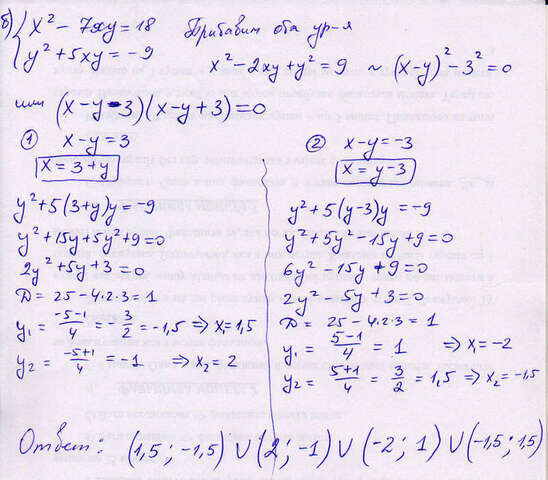 б) { x² - 7xy = 18   Прибавим оба ур-я
y² + 5xy = -9   x² - 2xy + y² = 9 ~ (x-y)² - 3² = 0
или (x-y-3)(x-y+3) = 0
① x-y = 3
x = 3+y
y² + 5(3+y)y = -9
y² + 15y + 5y² + 9 = 0
2y² + 5y + 3 = 0
D = 25 - 4·2·3 = 1
y₁ = (-5-1)/4 = -3/2 = -1,5 ⇒ x = 1,5
y₂ = (-5+1)/4 = -1 ⇒ x₂ = 2
② x-y = -3
x = y-3
y² + 5(y-3)y = -9
y² + 5y² - 15y + 9 = 0
6y² - 15y + 9 = 0
2y² - 5y + 3 = 0
D = 25 - 4·2·3 = 1
y₁ = (5-1)/4 = 1 ⇒ x = -2
y₂ = (5+1)/4 = 3/2 = 1,5 ⇒ x₂ = -1,5
Ответ: (1,5; -1,5) ∪ (2; -1) ∪ (-2; 1) ∪ (-1,5; 1,5)